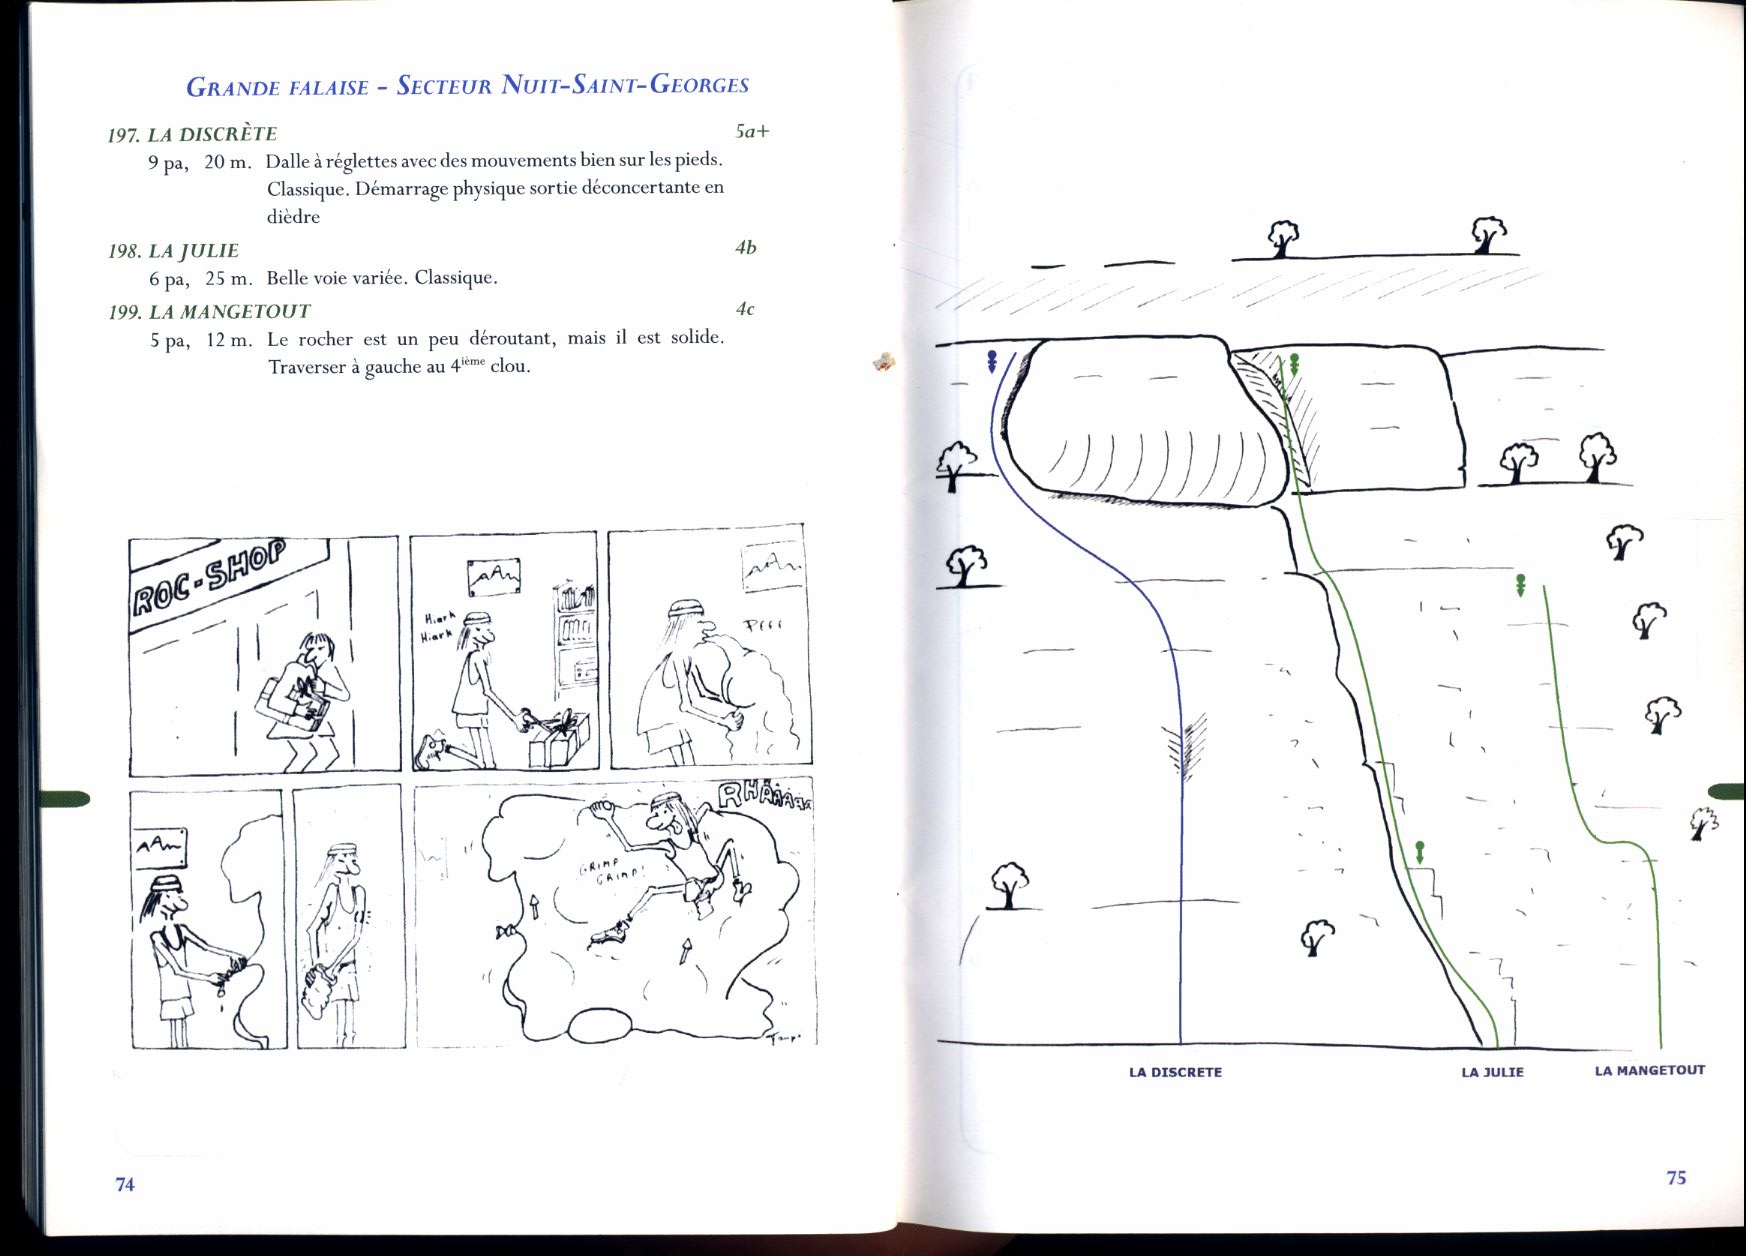 GRANDE FALAISE – SECTEUR NUIT-SAINT-GEORGES
197. LA DISCRÈTE 5a+
9 pa, 20 m. Dalle à réglettes avec des mouvements bien sur les pieds.
Classique. Démarrage physique sortie déconcertante en
dièdre
198. LA JULIE 4b
6 pa, 25 m. Belle voie variée. Classique.
199. LA MANGETOUT 4c
5 pa, 12 m. Le rocher est un peu déroutant, mais il est solide.
Traverser à gauche au 4ième clou.
ROC-SHOP
Hiark
Hiark
Pfff
RHÄAAAAA
GRIMP
GRIMP!
74
LA DISCRETE
LA JULIE
LA MANGETOUT
75